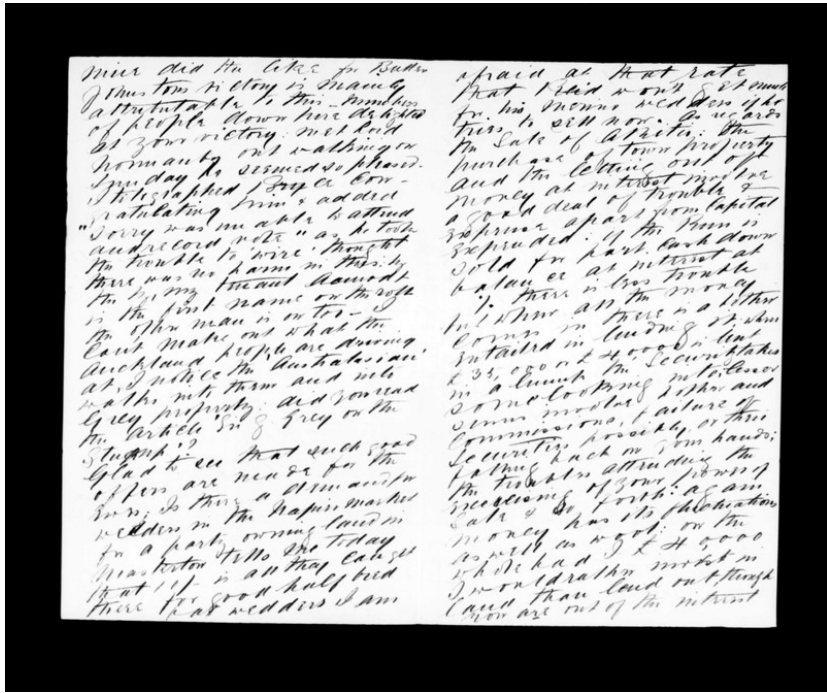 mine did the like for Butler
Johnstons victory is mainly
attributable to this - Numbers
of people down here delighted
at your victory: met Lord
Normanby out walking on
day he seemed so pleased -
I telegraphed Bryce con-
gratulating him & added
"Sorry was unable to attend
and record vote" as he took
the trouble to wire. thought
there was no harm in this. by
the by my tenant
is the first name on the roll
the other man is on too -
Cant make out what the
Auckland people are driving
at, I notice the Australasian
walks into them and into
Grey properly. did you read
the article Sir G Grey on the
Stump?
Glad to see that such good
offers are made for the
Ewes; Is there a demand for
wedders in the Napier market
for a party owning land in
Masterton tells me today
that 7/- is all they can get
there for good half bred
fat wedders I am
afraid at that rate
that Reid won't get much
for his merino wedders if he
tries to sell now. As regards
the Sale of the
purchase of town property
and the letting out of
money at interest involve
a good deal of trouble &
expense apart from Capital
expended. if the Run is
sold for part cash down
balance at interest at
% there is less trouble
but when all the money
comes in there is a bother
entailed in lending it, when
£35,000 or £40,000 is lent
in a lump the Security takes
some looking into lesser
sums involve bother and
Commissions, failure of
Securities possibly, or their
falling back on your hands;
the troubles attending the
exercising of your powers of
Sale & so forth. again
money has its fluctuations
as well as wool: on the
whole had I £40,000
I would rather invest in
land than lend out, though
now are out of the interest